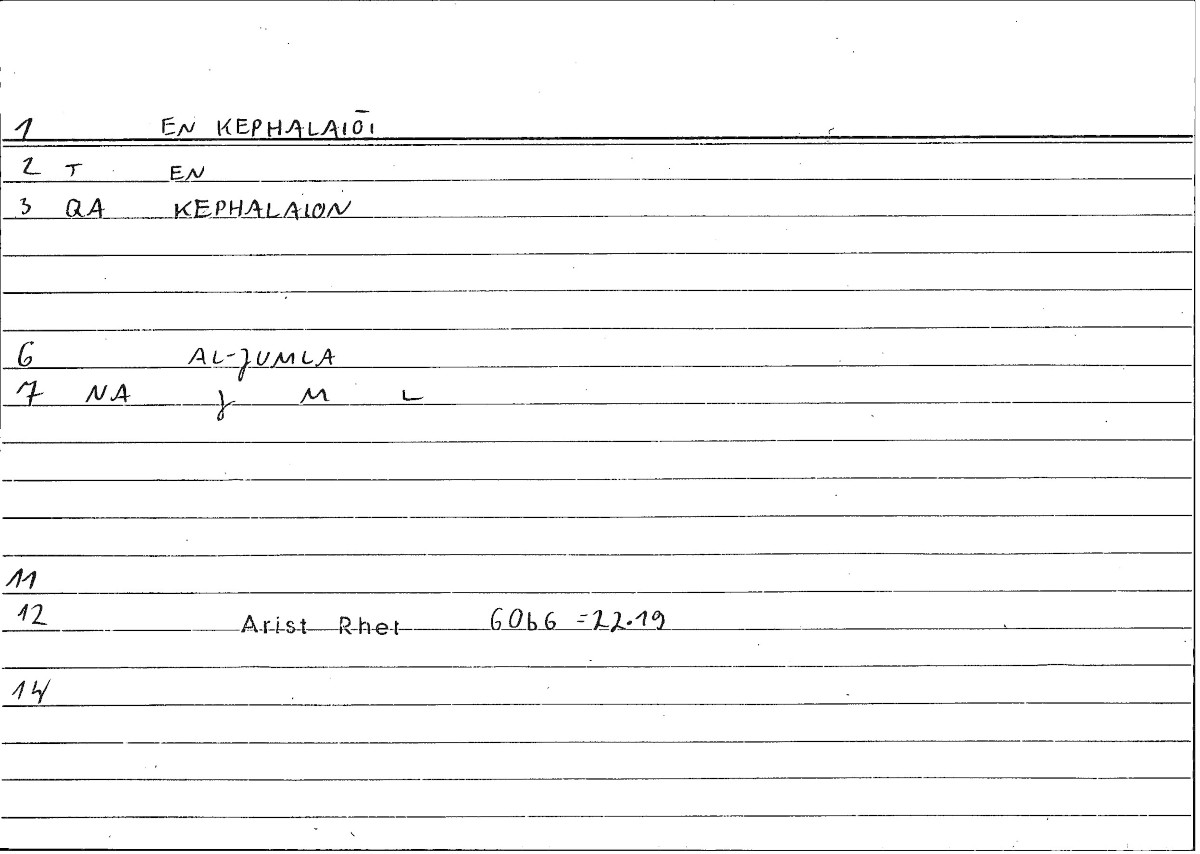 1 EN KEPHALAIŌI
2 T EN
3 QA KEPHALAION
6 AL-JUMLA
7 NA J M L
11
12 Arist Rhet 60b6 =22.19
14